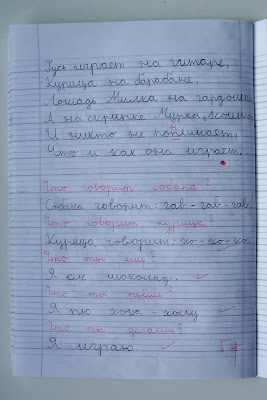 Гусь играет на гитаре,
Курица на барабане,
Лошадь Милка на гардошке
А на скрипке Мурка, кошка
И никто не понимает,
Что и как она играет.
Что говорит собака?
Собака говорит: гав-гав-гав.
Что говорит курица?
Курица говорит: ко-ко-ко.
Что ты ешь?
Я ем шоколад.
Что ты пьёшь?
Я пю кока-колу
Что ты делаешь?
Я играю.